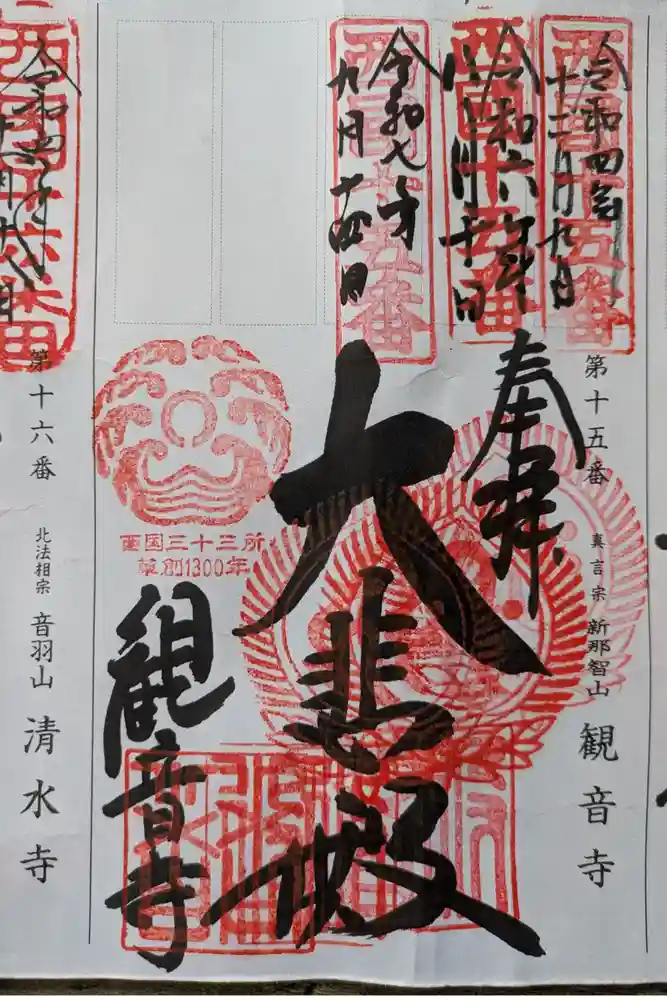 西国十五番
令和四年
十二月九日
西国十五番
令和六年
西国十五番
令和七年
九月十四日
第十五番
真言宗
新那智山
観音寺
奉拝
大悲殿
観音寺
西国三十三所
草創1300年
令和四年
第十六番
北法相宗
音羽山
清水寺